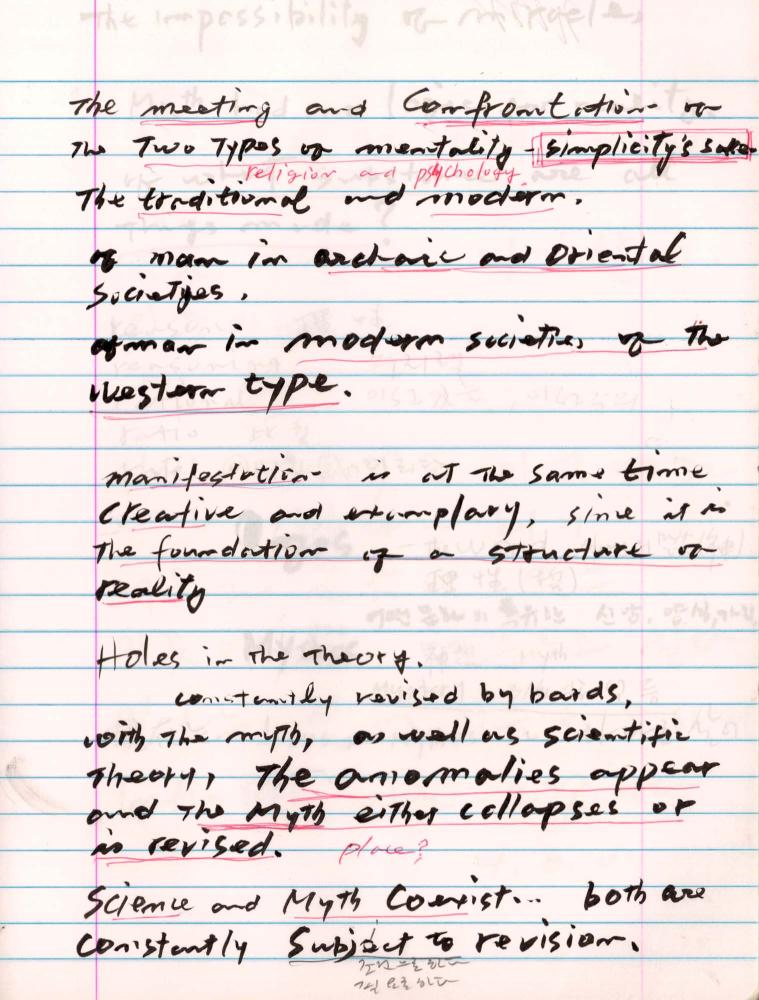 The impossibility of
The meeting and Confrontation of
The Two Types of mentality - simplicity's sake
religion and psychology
The traditional and modern.
of man in archaic and Oriental
Societies.
of man in modern societies of the
Western type.
manifestation is at The same time
Creative and exemplary, since it is
The foundation of a structure of
reality
Holes in the Theory.
constantly revised by bards,
with The myth, as well as scientific
Theory, The anomalies appear
and The Myth either collapses or
is revised. place?
Science and Myth Coexist... both are
Constantly Subject to revision.
조건으로 한다
필요로 한다